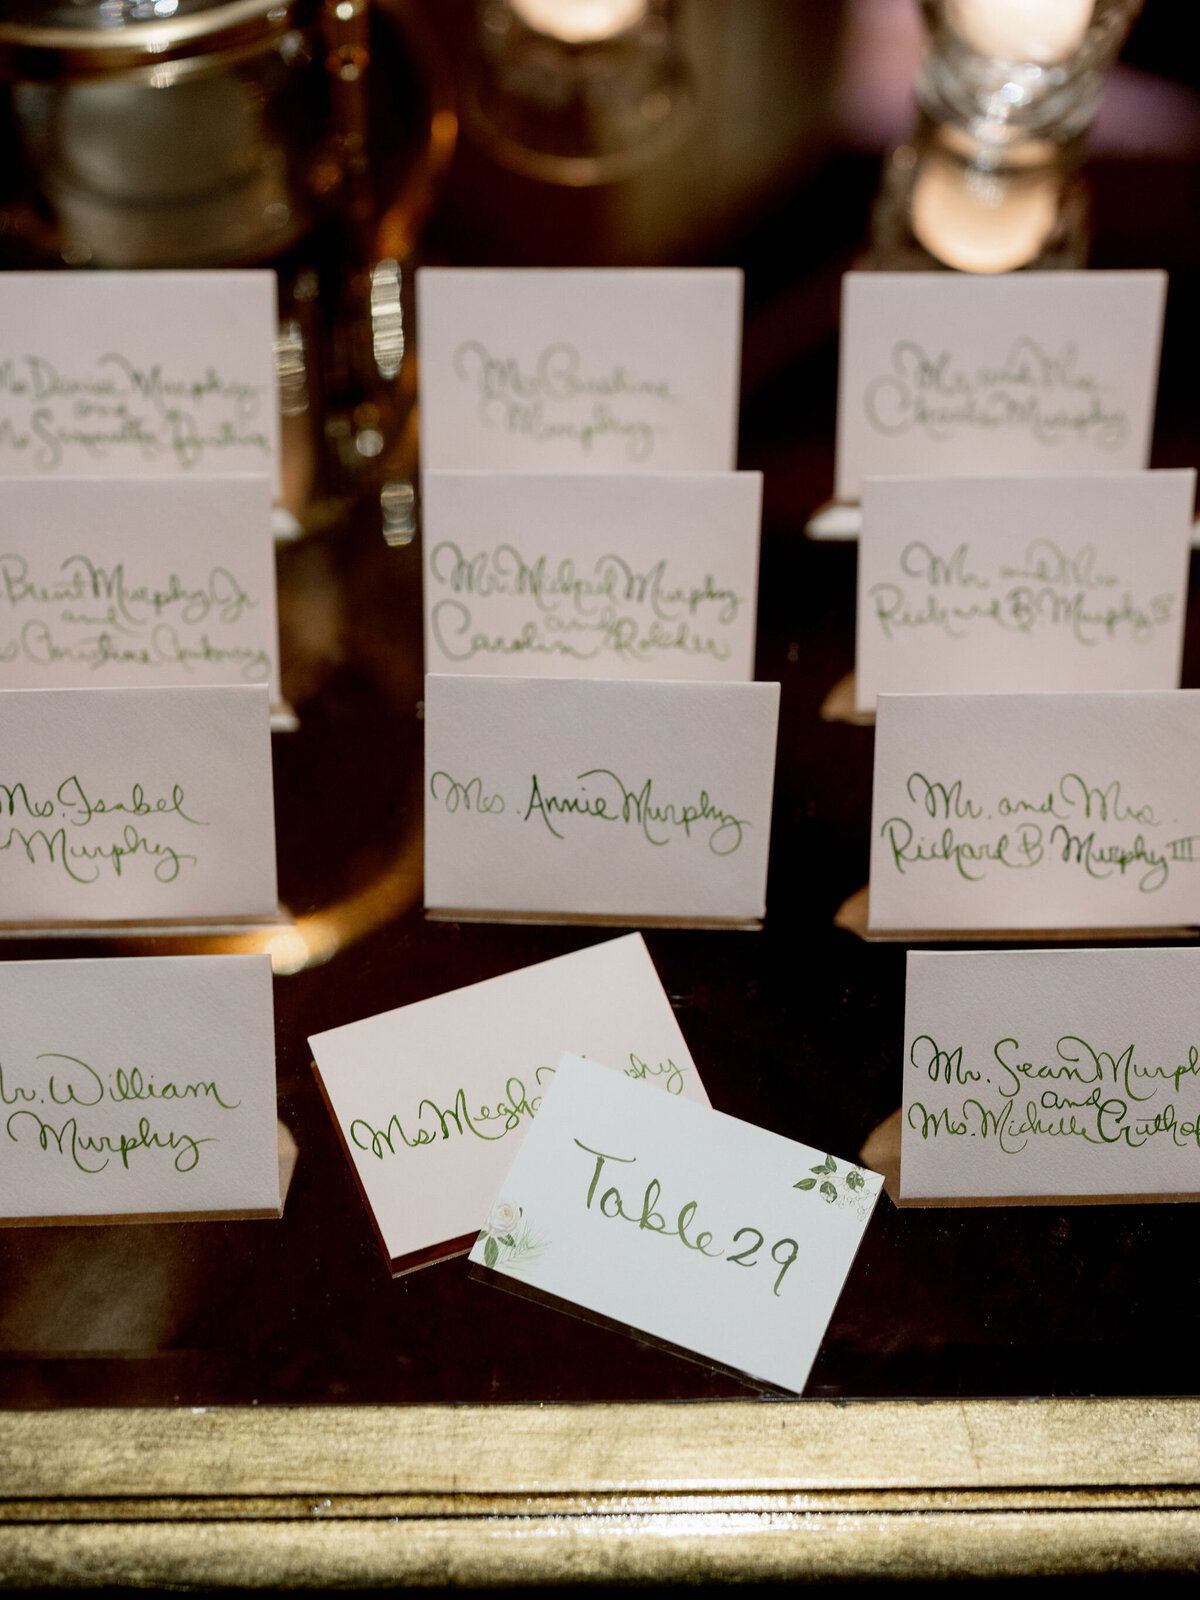 Murphy
and
Ms Caroline
Murphy
Mr. and Mrs.
Charles Murphy
Brent Murphy Jr
and
Christine
Mr. Michael Murphy
and
Carolin
Mr. and Mrs.
Richard B. Murphy
Ms. Isabel
Murphy
Ms. Annie Murphy
Mr. and Mrs.
Richard B. Murphy III
Mr. William
Murphy
Ms Megha
Table 29
Mr. Sean Murph
and
Ms. Michelle